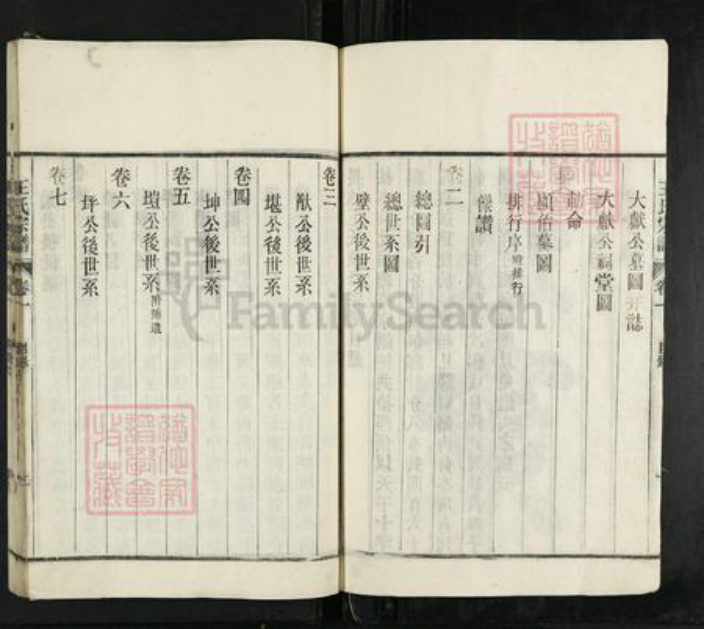 大獻公墓圖并誌
大獻公祠堂圖
勅命
顯佑墓圖
排行序附排行
像讚
卷二
總圖引
總世系圖
壁公後世系
卷三
猷公後世系
堪公後世系
卷四
坤公後世系
卷五
塏公後世系附補遺
卷六
坪公後世系
卷七
王氏宗譜 卷一
FamilySearch